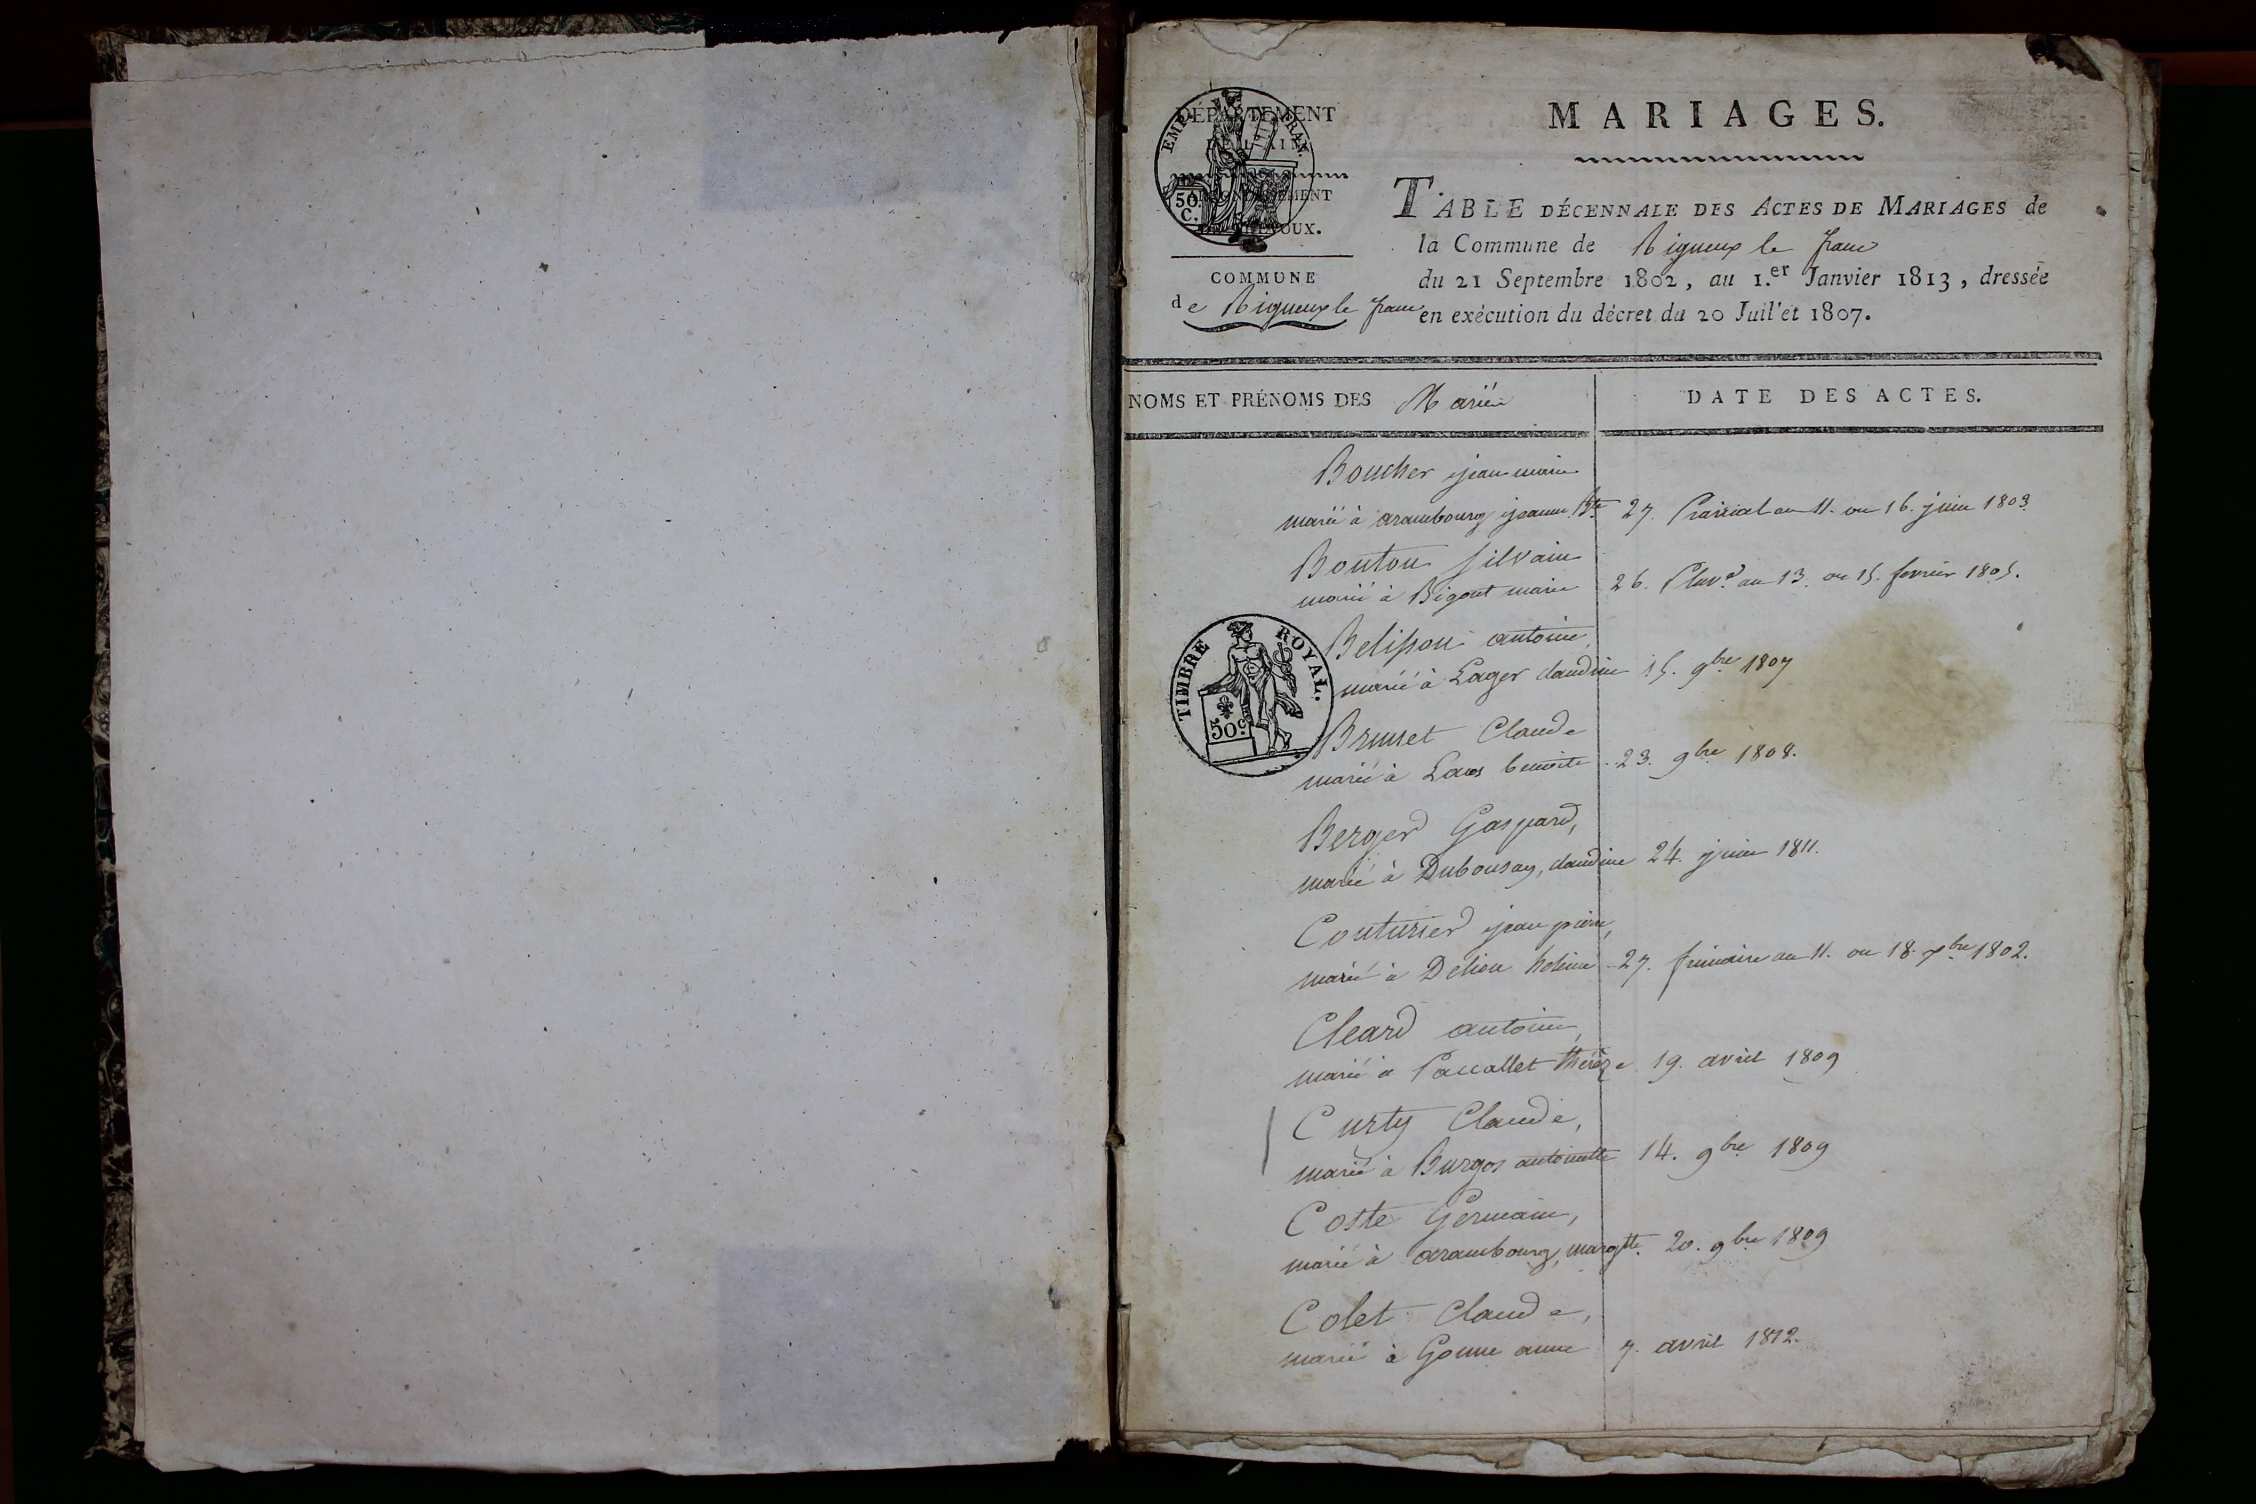 DÉPARTEMENT
DE L'AIN
ARRONDISSEMENT
DE TRÉVOUX.
EMP. FRAN.
50
C.
COMMUNE
de Rigneux le franc
MARIAGES.
TABLE DÉCENNALE DES ACTES DE MARIAGES de
la Commune de Rigneux le franc
du 21 Septembre 1802, au 1.er Janvier 1813, dressée
en exécution du décret du 20 Juil'et 1807.
NOMS ET PRÉNOMS DES Mariés
DATE DES ACTES.
Boucher jean marie
marié à arambourg jeanne Bte 27. Prairial an 11. ou 16. juin 1803
Bouton silvain
marié à Bigout marie 26. Pluv.e an 13. ou 15. fevrier 1805.
TIMBRE ROYAL.
50c
Belisson antoine,
marié à Lager claudine 15. 9bre 1807
Brunet Claude
marié à benoite 23. 9bre 1808.
Berger Gaspard,
marié à Dubousay, claudine 24. juin 1811.
Couturier jean pierre,
marié à Delieu 27. frimaire an 11. ou 18. Xbre 1802.
Cleard antoine,
marié à Paccallet thérèze 19. avril 1809
Curty Claude,
marié à Burgos antoinette 14. 9bre 1809
Coste Germain,
marié à arambourg, margtte. 20. 9bre 1809
Colet Claude,
marié à Gonne anne 7. avril 1812.